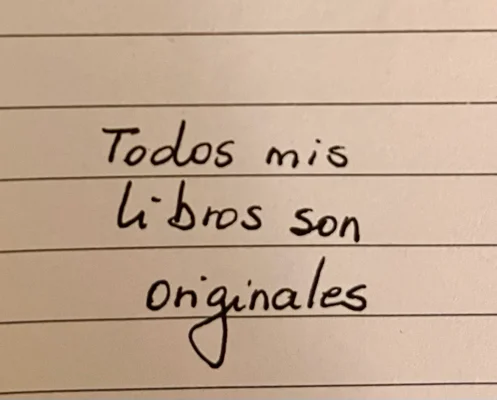 Todos mis
libros son
originales